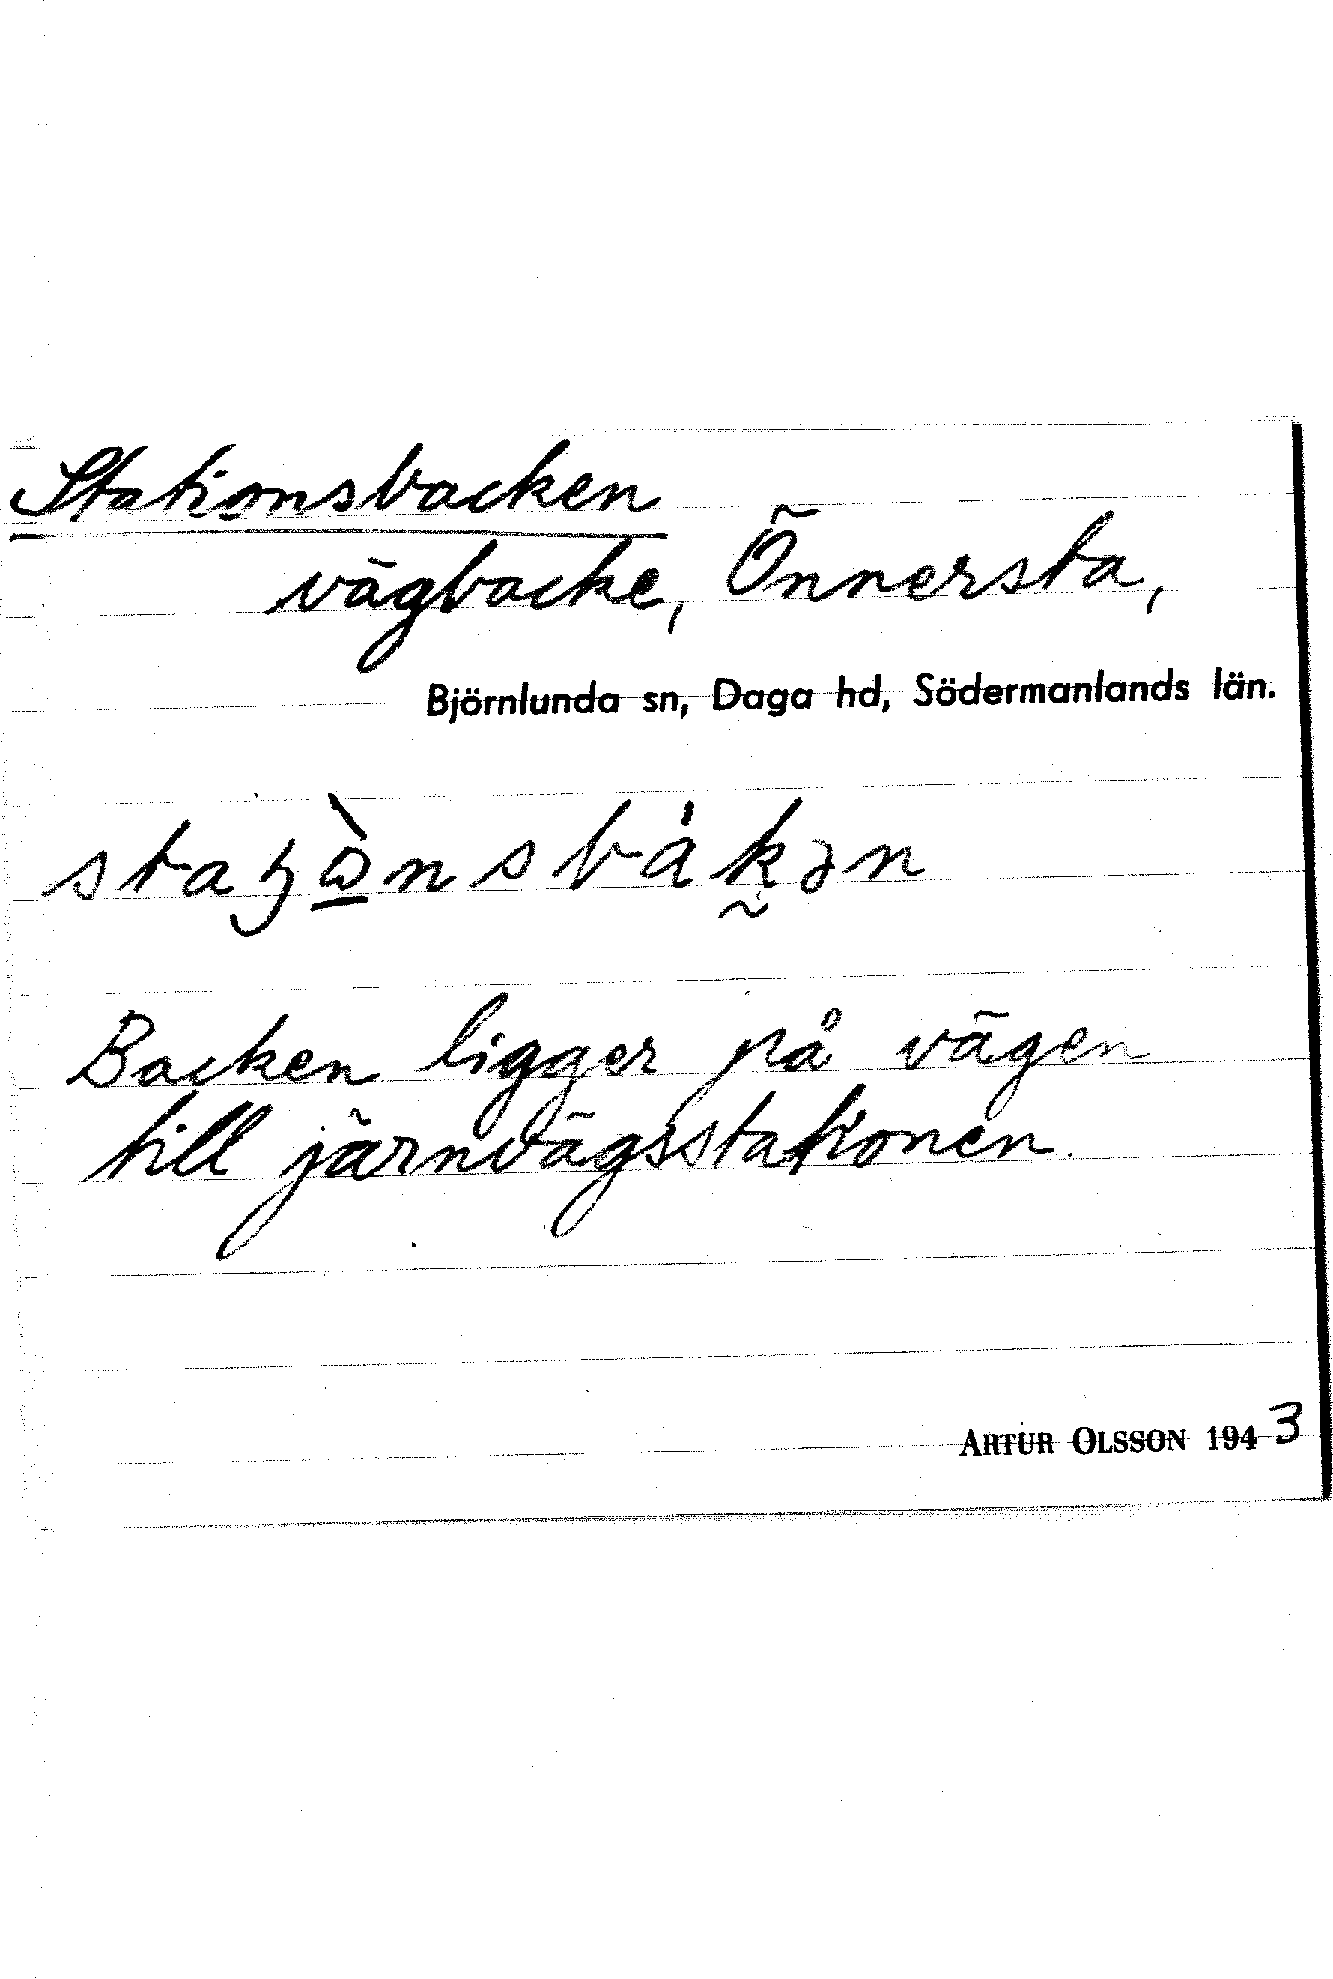 Stationsbacken
vägbacke, Önnersta,
Björnlunda sn, Daga hd, Södermanlands län.
Backen ligger på vägen
till järnvägsstationen.
ARTUR OLSSON 1943